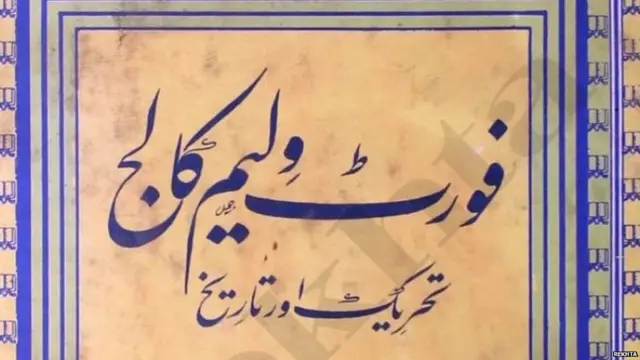 فورٹ ولیم کالج
تحریک اور تاریخ
rekhta
REKHTA